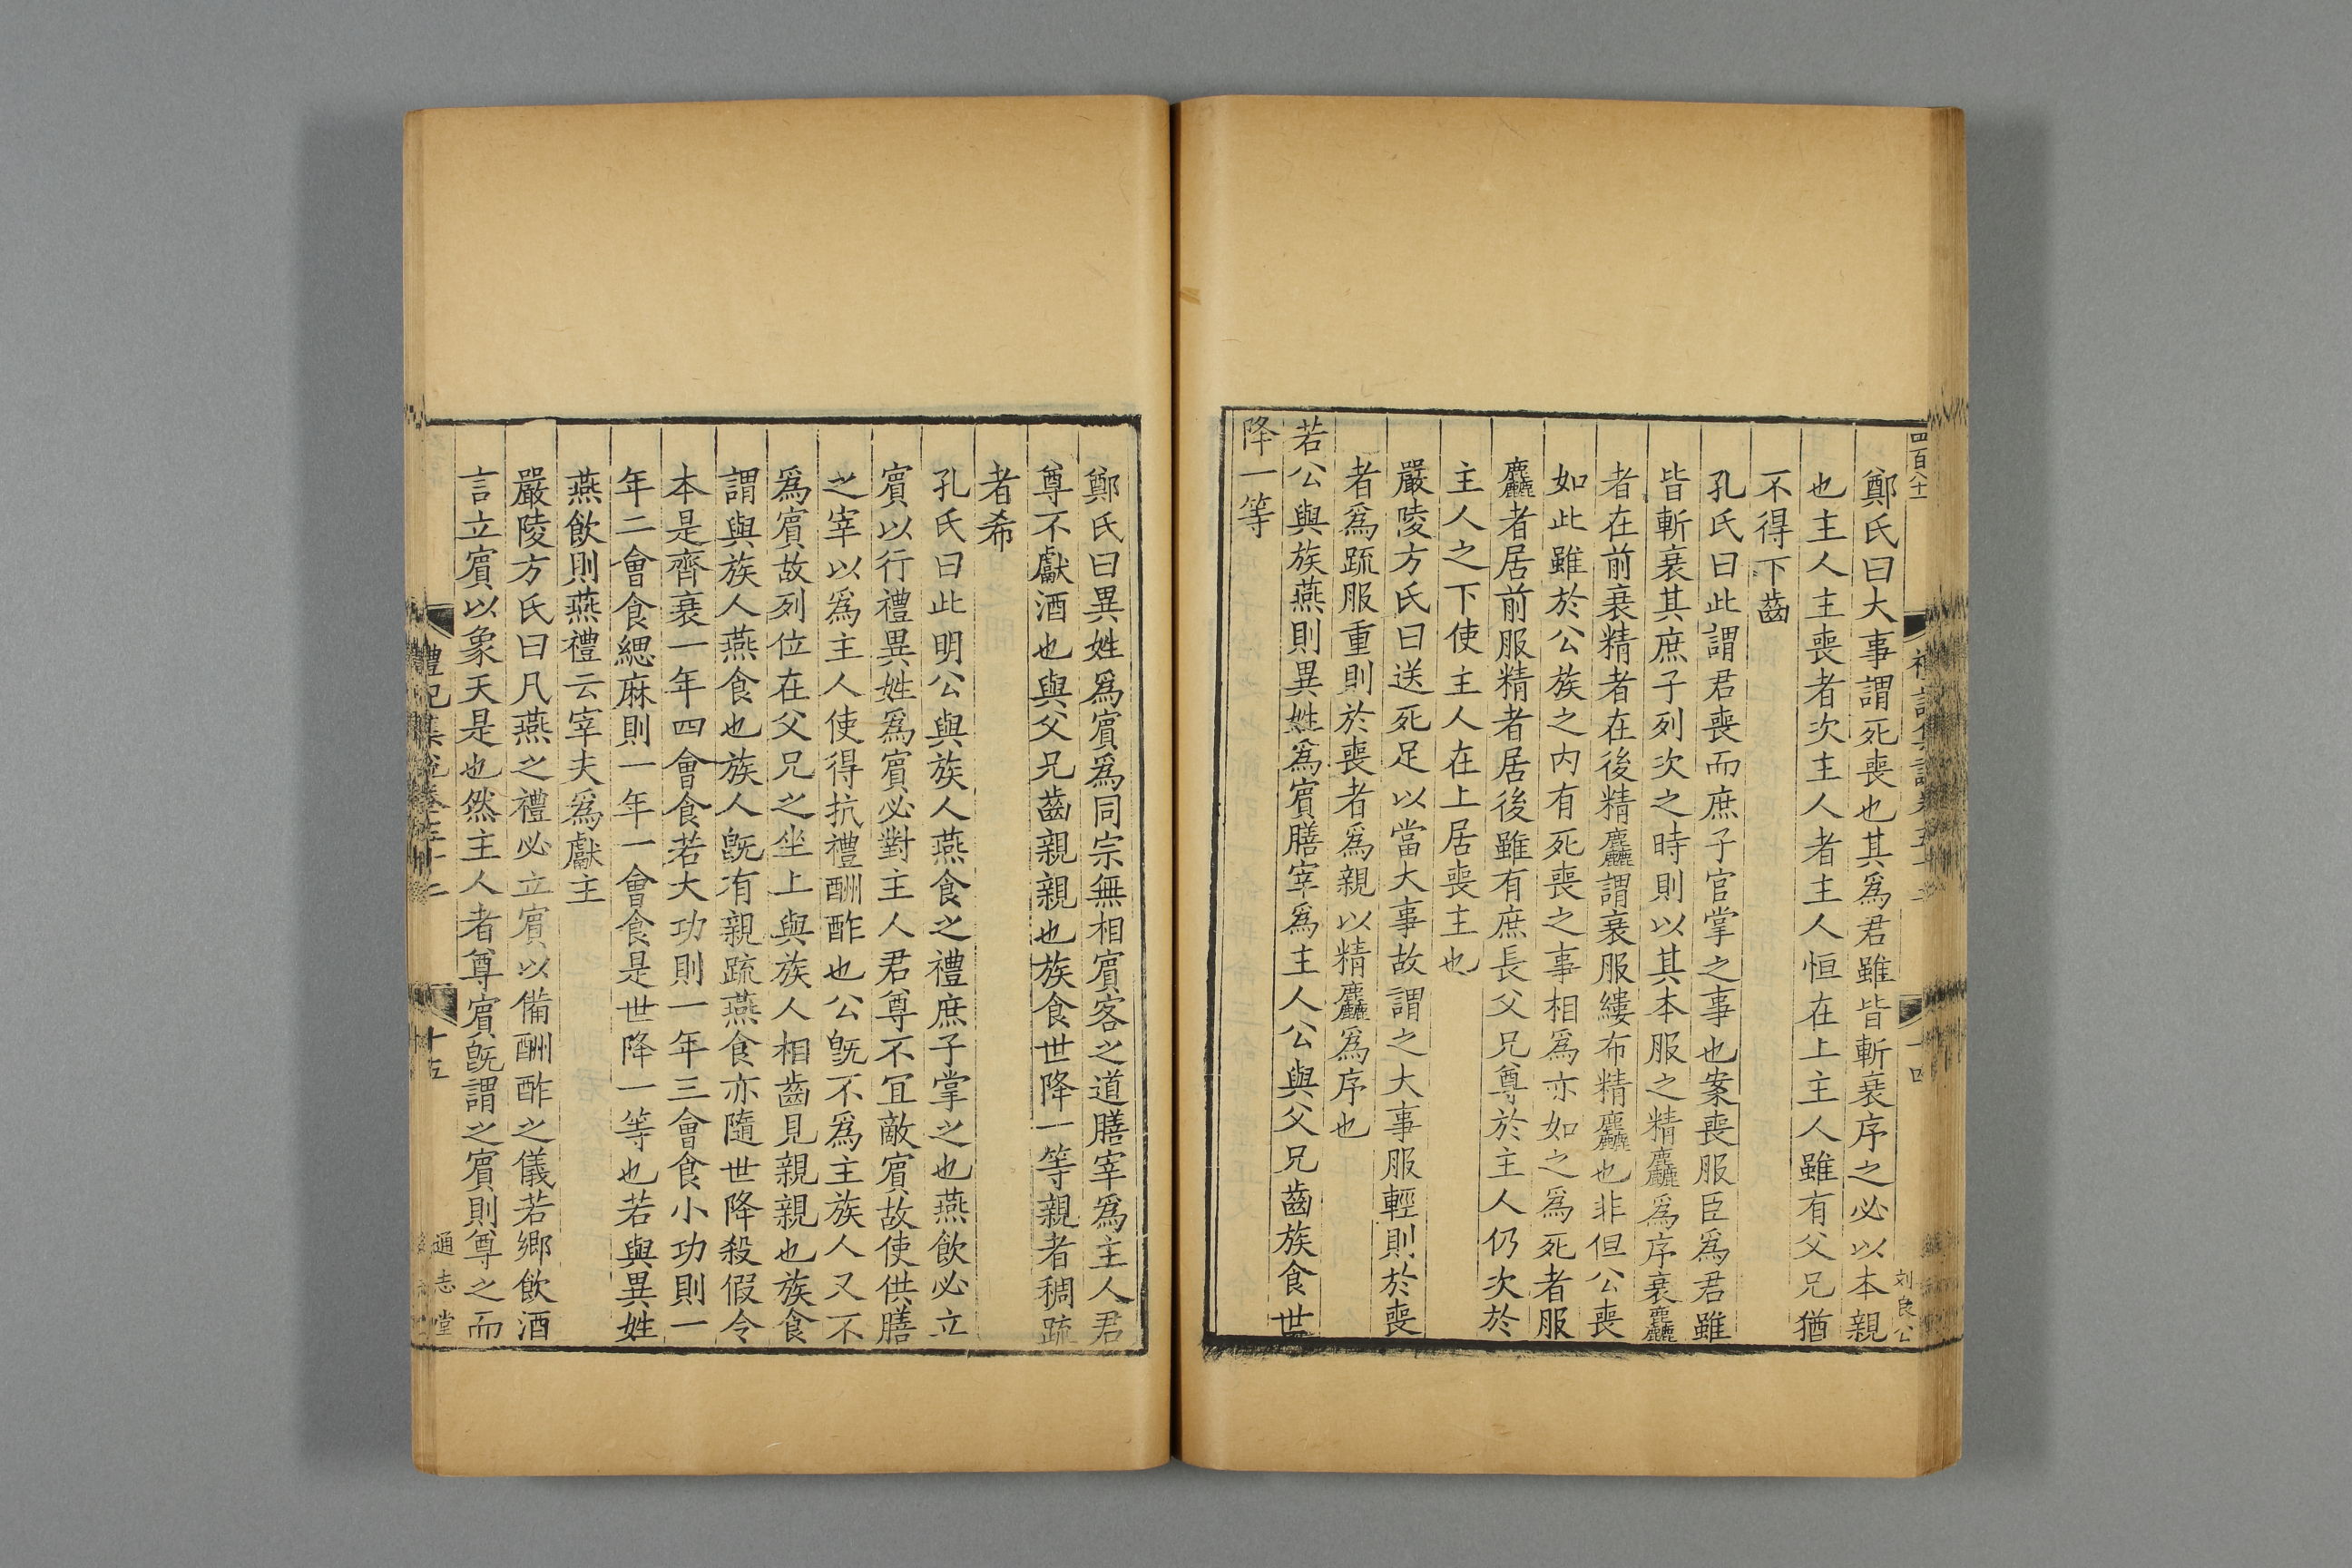 四百八十
鄭氏曰大事謂死喪也其爲君雖皆斬衰序之必以本親
也主人主喪者次主人者主人恒在上主人雖有父兄猶
不得下齒
孔氏曰此謂君喪而庶子官掌之事也案喪服臣爲君雖
皆斬衰其庶子列次之時則以其本服之精麤爲序衰麤
者在前衰精者在後精麤謂衰服縷布精麤也非但公喪
如此雖於公族之内有死喪之事相爲亦如之爲死者服
麤者居前服精者居後雖有庶長父兄尊於主人仍次於
主人之下使主人在上居喪主也
嚴陵方氏曰送死足以當大事故謂之大事服輕則於喪
者爲䟽服重則於喪者爲親以精麤爲序也
若公與族燕則異姓爲賔膳宰爲主人公與父兄齒族食世
降一等
刘良公
鄭氏曰異姓爲賔爲同宗無相賔客之道膳宰爲主人君
尊不獻酒也與父兄齒親親也族食世降一等親者稠䟽
者希
孔氏曰此明公與族人燕食之禮庶子掌之也燕飲必立
賔以行禮異姓爲賔必對主人君尊不冝敵賔故使供膳
之宰以爲主人使得抗禮酬酢也公旣不爲主族人又不
爲賔故列位在父兄之坐上與族人相齒見親親也族食
謂與族人燕食也族人旣有親䟽燕食亦隨世降殺假令
本是齊衰一年四會食若大功則一年三會食小功則一
年二會食緦麻則一年一會食是世降一等也若與異姓
燕飲則燕禮云宰夫爲獻主
嚴陵方氏曰凡燕之禮必立賔以備酬酢之儀若鄉飲酒
言立賔以象天是也然主人者尊賔旣謂之賔則尊之而
禮記集說卷五十二
十五
通志堂